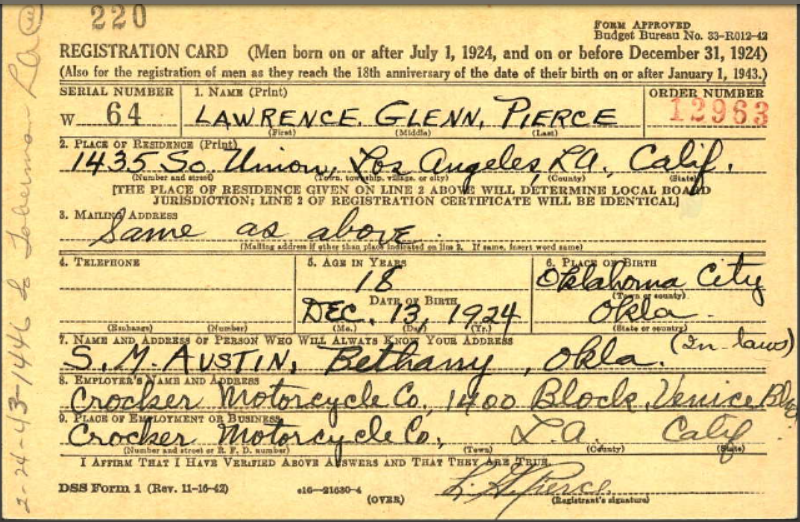 220
FORM APPROVED
Budget Bureau No. 33-R012-42
REGISTRATION CARD (Men born on or after July 1, 1924, and on or before December 31, 1924)
(Also for the registration of men as they reach the 18th anniversary of the date of their birth on or after January 1, 1943.)
SERIAL NUMBER 1. NAME (Print) ORDER NUMBER
W 64 LAWRENCE GLENN, PIERCE 12963
(First) (Middle) (Last)
2. PLACE OF RESIDENCE (Print)
1435 So. Union, Los Angeles, LA., Calif.
(Number and street) (Town, township, village, or city) (County) (State)
[THE PLACE OF RESIDENCE GIVEN ON LINE 2 ABOVE WILL DETERMINE LOCAL BOARD
JURISDICTION; LINE 2 OF REGISTRATION CERTIFICATE WILL BE IDENTICAL]
3. MAILING ADDRESS
Same as above.
(Mailing address if other than place indicated on line 2. If same, insert word same)
4. TELEPHONE 5. AGE IN YEARS 6. PLACE OF BIRTH
18 Oklahoma City
(Town or county)
DATE OF BIRTH
DEC. 13, 1924 Okla.
(Exchange) (Number) (Mo.) (Day) (Yr.) (State or country)
7. NAME AND ADDRESS OF PERSON WHO WILL ALWAYS KNOW YOUR ADDRESS
S. M. AUSTIN, Bethany, Okla. (In-laws)
8. EMPLOYER'S NAME AND ADDRESS
Crocker Motorcycle Co, 1400 Block, Venice Blvd.
9. PLACE OF EMPLOYMENT OR BUSINESS
Crocker Motorcycle Co., L.A. Calif.
(Number and street or R. F. D. number) (Town) (County) (State)
I AFFIRM THAT I HAVE VERIFIED ABOVE ANSWERS AND THAT THEY ARE TRUE.
DSS Form 1 (Rev. 11-16-42) e16-21630-4 L. G. Pierce
(OVER) (Registrant's signature)
2-24-43-1446